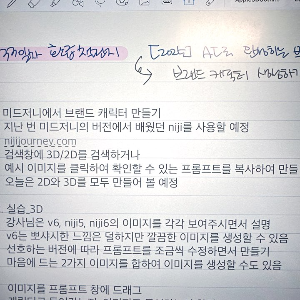 [2교시] AI로
브랜드 캐릭터
미드저니에서 브랜드 캐릭터 만들기
지난 번 미드저니의 버전에서 배웠던 niji를 사용할 예정
nijijourney.com
검색창에 3D/2D를 검색하거나
예시 이미지를 클릭하여 확인할 수 있는 프롬프트를 복사하여 만들
오늘은 2D와 3D를 모두 만들어 볼 예정
실습_3D
강사님은 v6, niji5, niji6의 이미지를 각각 보여주시면서 설명
v6는 뽀사시한 느낌은 덜하지만 깔끔한 이미지를 생성할 수 있음
선호하는 버전에 따라 프롬프트를 조금씩 수정하면서 만들기
마음에 드는 2가지 이미지를 합하여 이미지를 생성할 수도 있음
이미지를 프롬프트 창에 드래그